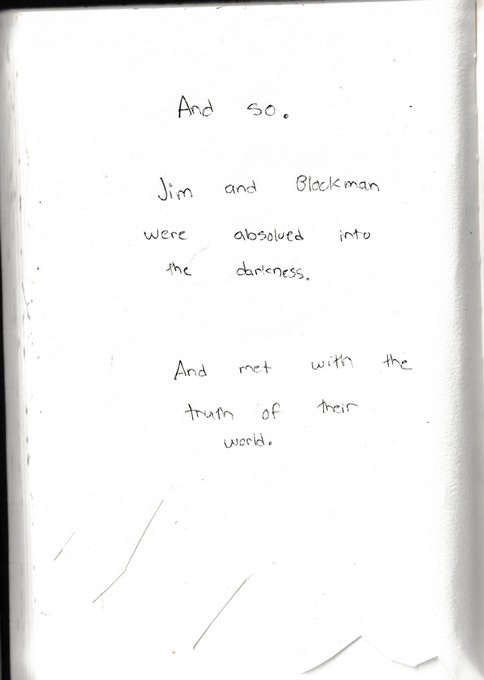 And so.
Jim and Blockman
were absolved into
the darkness.
And met with the
truth of their
world.